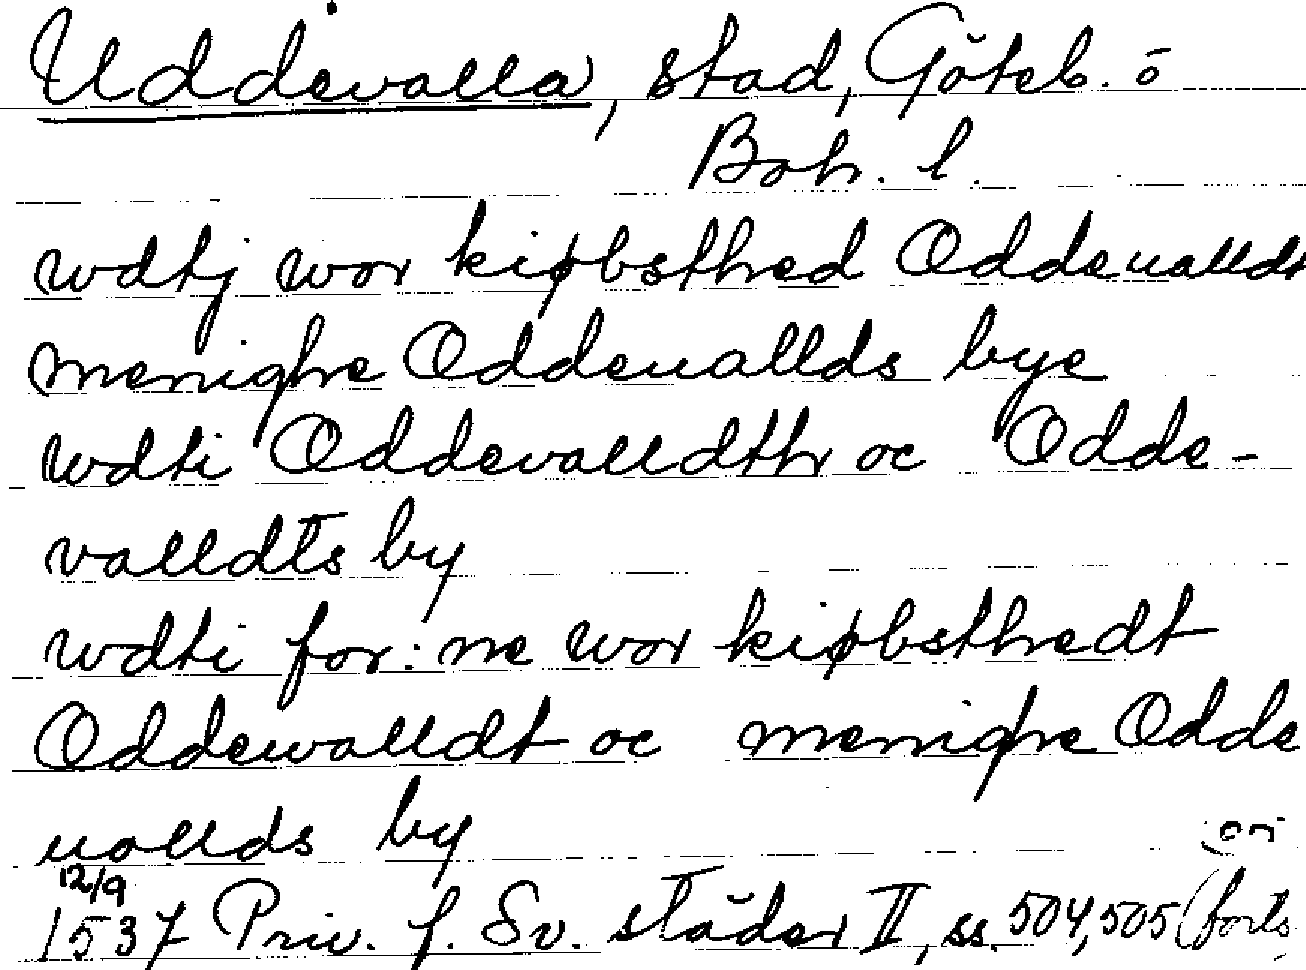 Uddevalla, stad, Göteb. o
Boh. l.
wdtj wor kiøbsthed Oddeualldt
menighe Oddeuallds bye
wdti Oddevalldth oc Odde-
valldts by
wdti for:ne wor kiøbsthedt
Oddewalldt oc menighe Odde
uallds by
12/9
1537 Priv. f. Sv. städer II, ss. 504, 505 (forts.